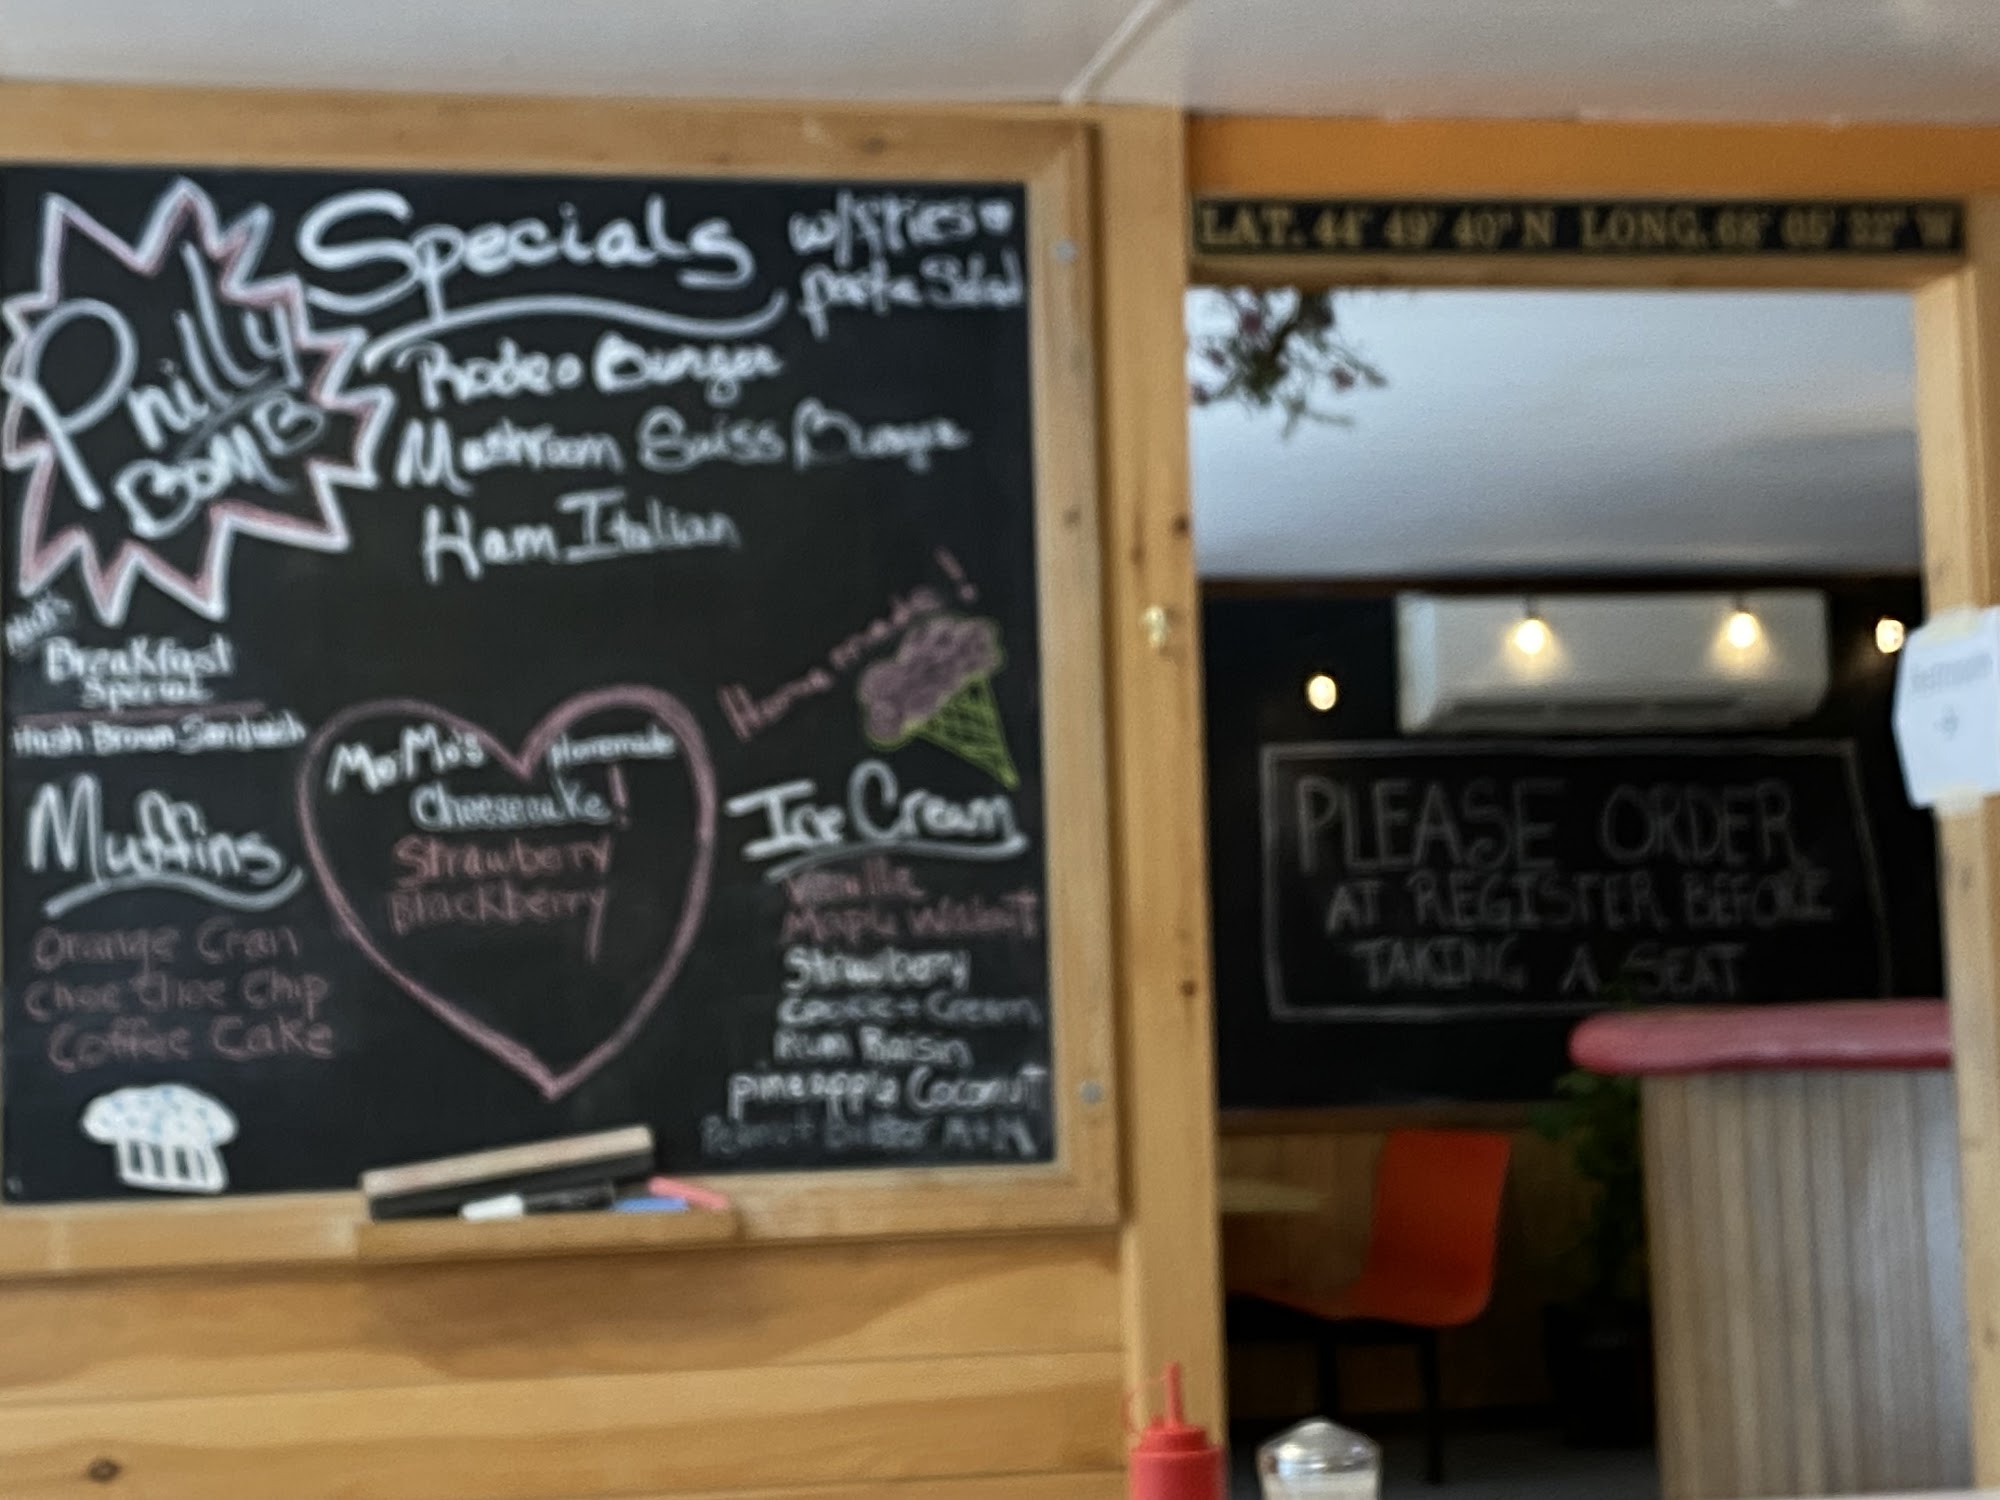 Specials
w/fries or
pasta Salad
Philly
BOMB
Rodeo Burger
Mushroom Swiss Burger
Ham Italian
Breakfast
Special
Hash Brown Sandwich
Muffins
Orange Cran
Choc Choc Chip
Coffee Cake
MoMo's Homemade
Cheesecake!
Strawberry
Blackberry
Homemade!
Ice Cream
Vanilla
Maple Walnut
Strawberry
Cookie + Cream
Rum Raisin
pineapple Coconut
Peanut Butter
LAT. 44° 49' 40" N LONG. 68° 05' 32" W
PLEASE ORDER
AT REGISTER BEFORE
TAKING A SEAT